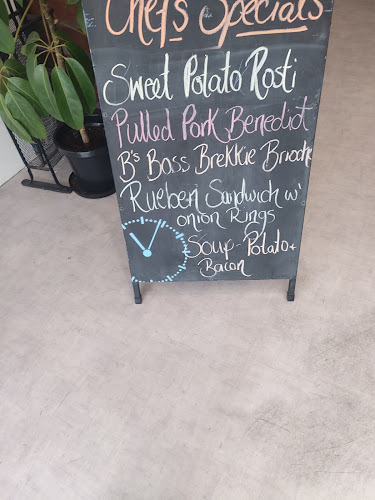 Chefs Specials
Sweet Potato Rosti
Pulled Pork Benedict
B's Boss Brekkie Brioche
Rueben Sandwich w'
onion Rings
Soup - Potato +
Bacon